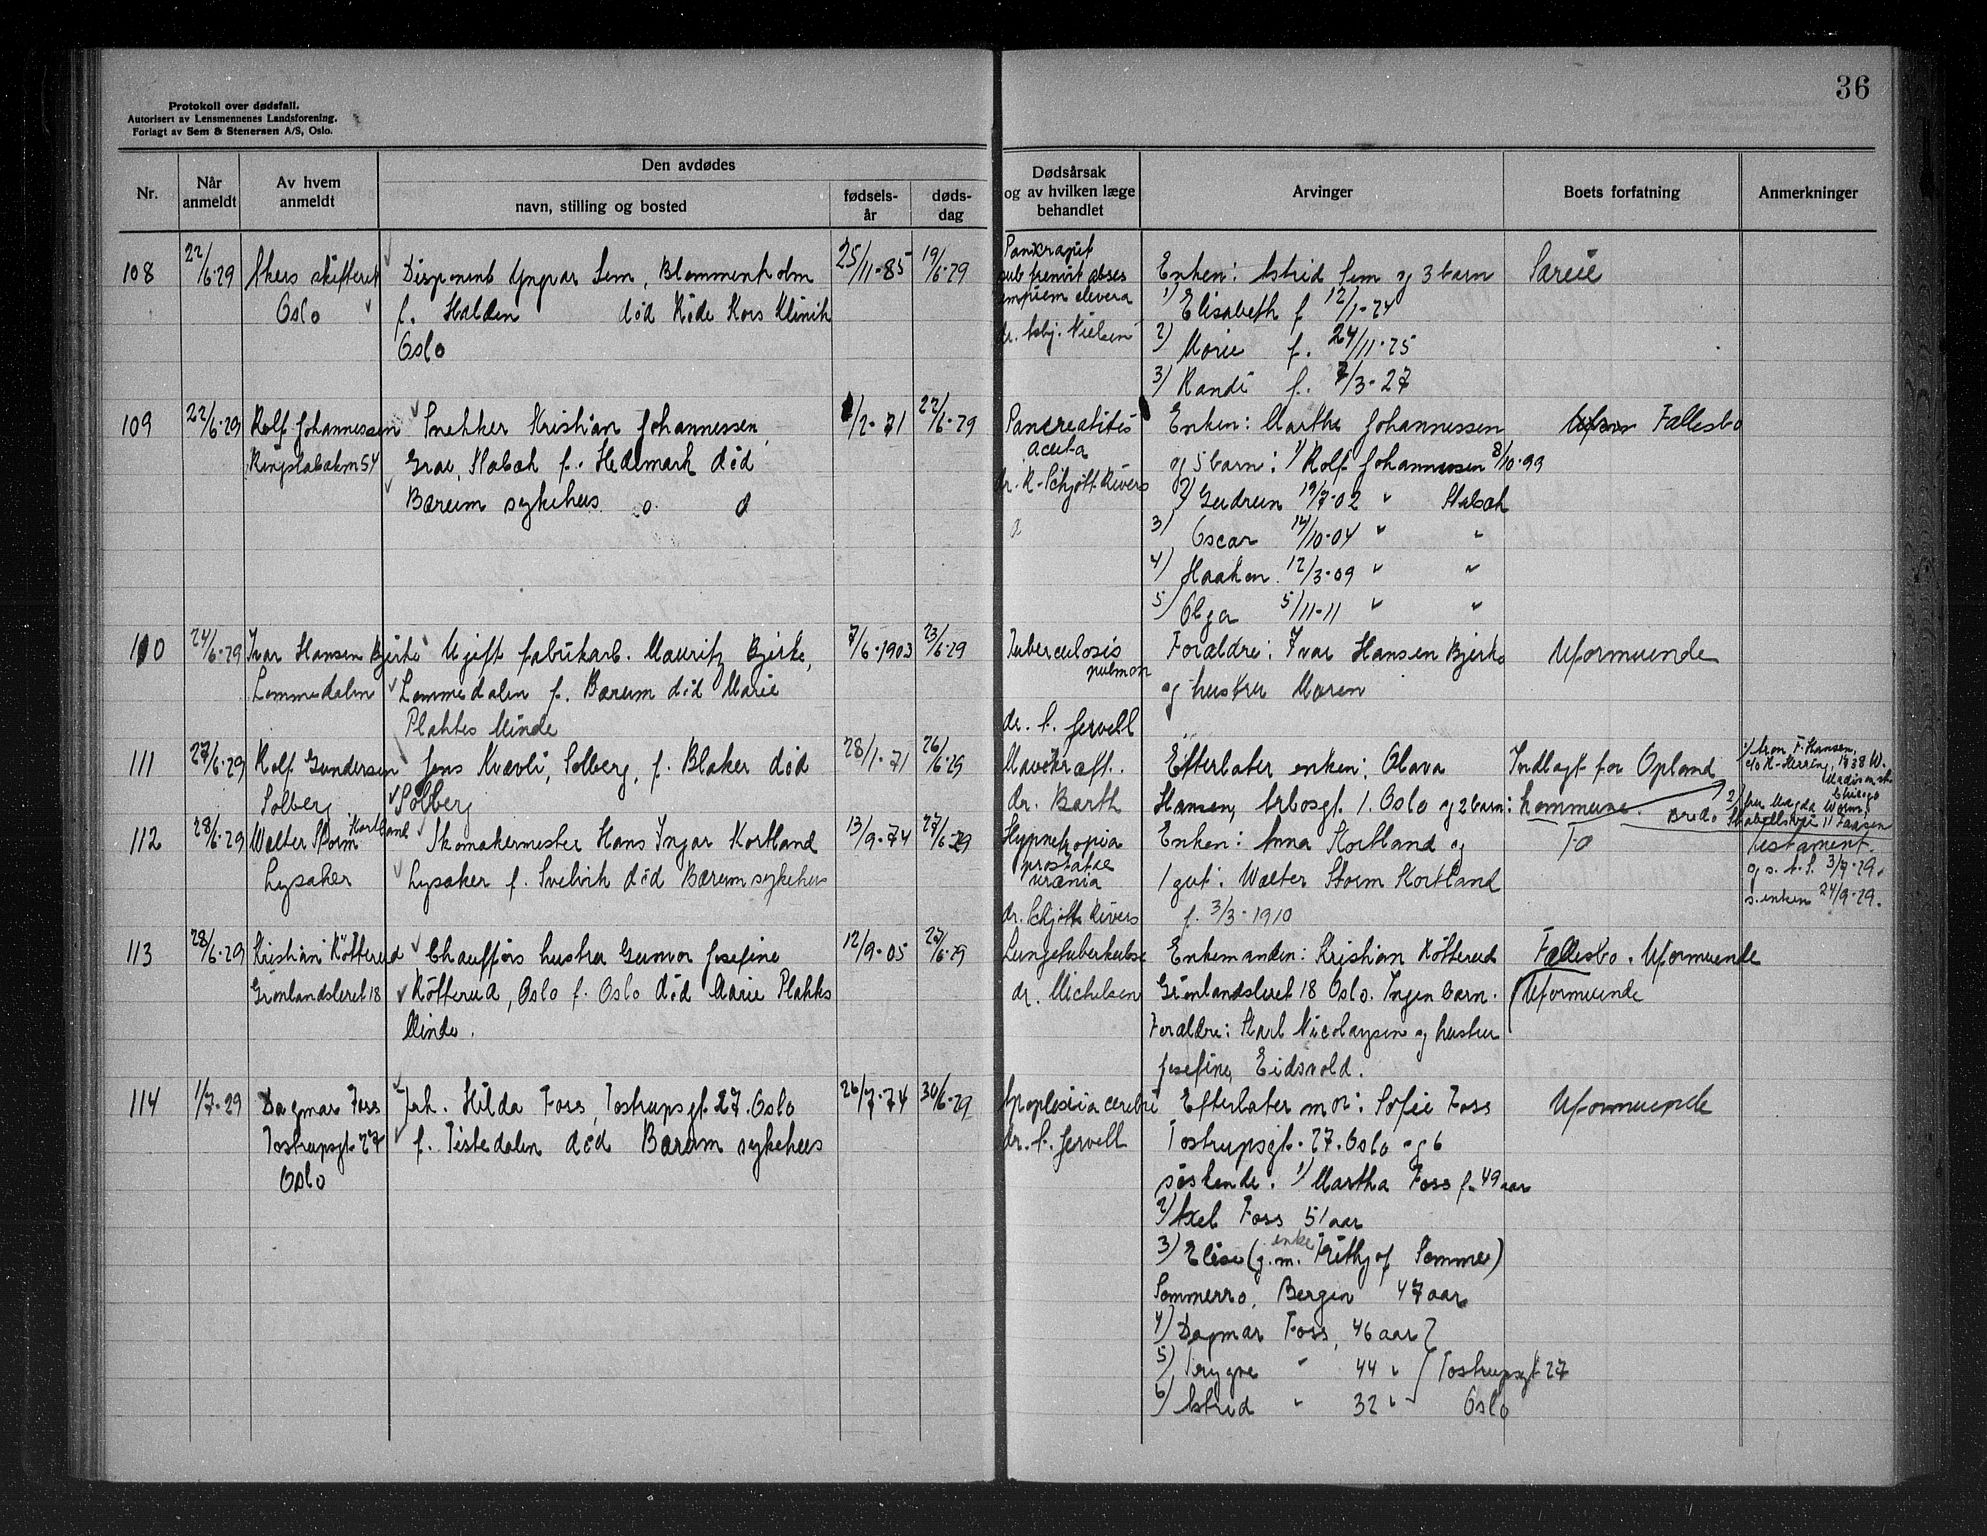 36
Protokoll over dødsfall.
Autorisert av Lensmennenes Landsforening.
Forlagt av Sem & Stenersen A/S, Oslo.
Nr.
Når anmeldt
Av hvem anmeldt
Den avdødes
navn, stilling og bosted
fødsels-år
døds-dag
Dødsårsak og av hvilken læge behandlet
Arvinger
Boets forfatning
Anmerkninger
108 22/6-29 Akers skifteret Disponent Yngvar Sem, Blommenholm 25/11-85 19/6-29
Oslo f. Halden død Røde Kors Klinik
Oslo
dr. Asbj. Nielsen
Enken: Astrid Sem og 3 barn Særeie
1) Elisabeth f 12/1-24
2) Marie f. 24/11-25
3) Randi f. 7/3-27
109 22/6-29 Rolf Johannessen Snekker Kristian Johannessen, /2-71 22/6-29
Ringstabækn 54 Grav, Stabæk f. Hedemark død
Bærum sykehus
Pancreatitis
acuta
dr. R. Schjøtt-Rivers
Enken: Marthe Johannessen Fællesbo
og 5 barn: 1) Rolf Johannessen 8/10-99
2) Gudrun 19/7-02 " Stabæk
3) Oscar 14/10-04 " "
4) Haakon 12/3-09 " "
5) Olga 5/11-11 " "
110 24/6-29 Ivar Hansen Bjerke Ugift fabrikarb. Mauritz Bjerke, 7/6-1903 23/6-29
Lommedalen Lommedalen f. Bærum død Marie
Plahtes Minde
Tuberculosis
pulmon
dr. f. Jervell
Forældre: Ivar Hansen Bjerke Uformuende
og hustru Maren
111 27/6-29 Rolf Gundersen Jens Kvævli, Solberg, f. Blaker død 28/1-71 26/6-29
Solberg Solberg
Mavekræft.
dr. Barth
Efterlater enken: Olava Indlagt for Opland
Hansen, Arbosgt 1. Oslo og 2 barn: kommune.
1) Aron F. Hansen,
c/o H. Herring, 1838 W.
Madison st
Chicago
2) fru Magda
112 28/6-29 Walter Storm Kortland Skomakermester Hans Ingar Kortland 13/9-74 27/6-29
Lysaker Lysaker f. Svelvik død Bærum sykehus
prostatae
urænia
dr. Schjøtt Rivers
Enken: Anna Kortland og
1 gut: Walter Storm Kortland
f. 3/3-1910
Testament.
3/9-29.
s. enken 24/9-29.
113 28/6-29 Kristian Køtterud Chaufførs hustru Gunvor Josefine 12/9-05 27/6-29
Grønlandsleret 18 Køtterud, Oslo f. Oslo død Marie Plahtes
Minde.
Lungetuberkulose
dr. Michelsen
Enkemanden: Kristian Køtterud Fællesbo. Uformuende
Grønlandsleret 18 Oslo. Ingen barn. Uformuende
Forældre: Karl Nicolaysen og hustru
Josefine, Eidsvold.
114 1/7-29 Dagmar Foss Frk. Hilda Foss, Tostrupsgt. 27. Oslo 26/7-74 30/6-29
Tostrupsgt 27 f. Tistedalen død Bærum sykehus
Oslo
Apoplexia cerebri
dr. f. Jervell
Efterlater mor: Sofie Foss Uformuende
Tostrupsgt. 27. Oslo og 6
søskende: 1) Martha Foss f. 49 aar
2) Axel Foss 51 aar
3) Elise (g.m. enke Frithjof Sommer)
Sommerro, Bergen 47 aar
4) Dagmar Foss, 46 aar
5) Trygve " 44 " Tostrupsgt 27
6) Astrid " 32 " Oslo